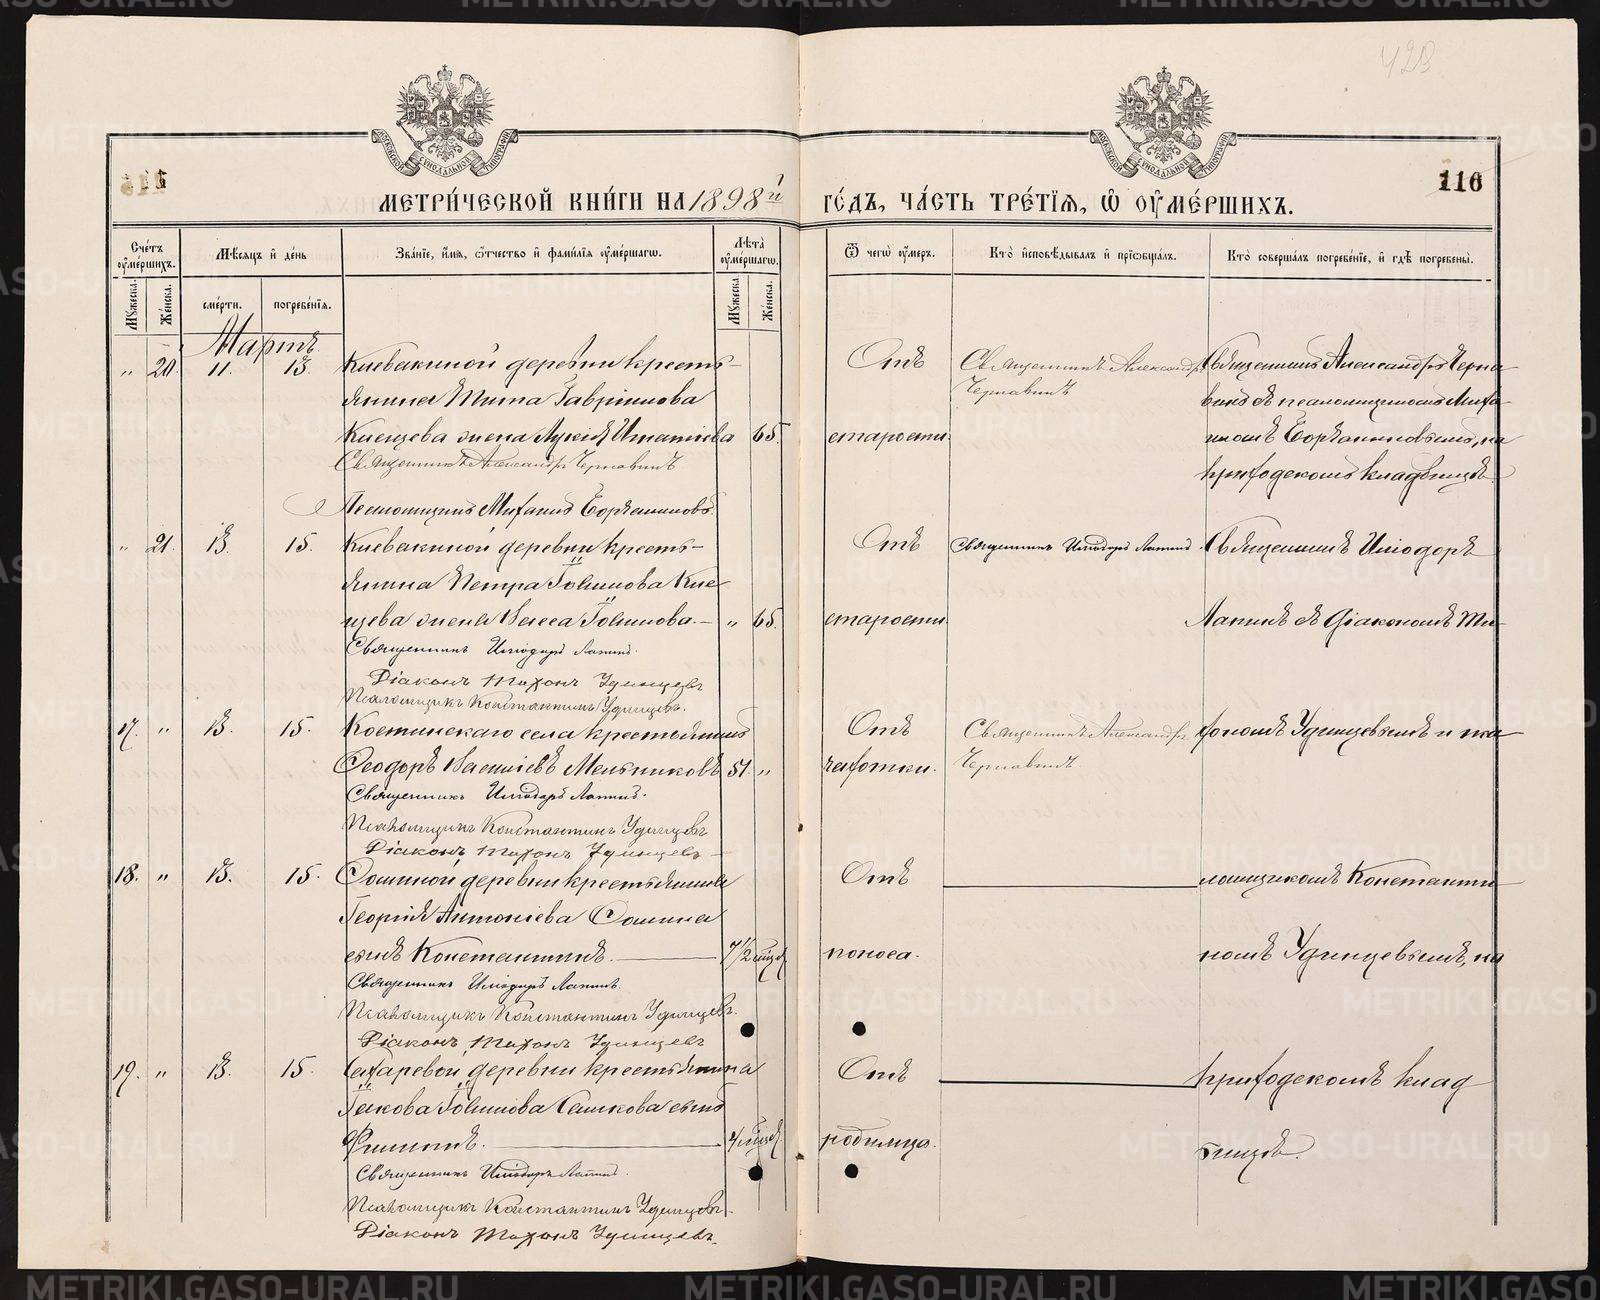 423
116
МОСКОВСКОЙ СѴНОДАЛЬНОЙ ТИПОГРАФІИ
МОСКОВСКОЙ СѴНОДАЛЬНОЙ ТИПОГРАФІИ
МЕТРИ́ЧЕСКОЙ КНИ́ГИ НА 1898й ГО́ДЪ, ЧА́СТЬ ТРЕ́ТІЯ, Ѡ ОУ҆МЕ́РШИХЪ.
Сче́тъ оу҆ме́ршихъ.
Мꙋ́жеска.
Же́нска.
Мѣ́сяцъ и҆ де́нь
сме́рти.
погребе́нїѧ.
Зва́нїе, и҆́мѧ, ѻ҆́тчество и҆ фами́лїѧ оу҆ме́ршагѡ.
Лѣ́та оу҆ме́ршагѡ.
Мꙋ́жеска.
Же́нска.
Ѿ чегѡ̀ оу҆́меръ.
Кто̀ и҆сповѣ́дывалъ и҆ прїѡбща́лъ.
Кто̀ соверша́лъ погребе́нїе, и҆ гдѣ̀ погребены̀.
Мартъ
" 20 11. 13. Киевакиной деревни кресть-
янина Тита Гавриилова
Киевцева жена Лукія Игнатіева 65.
Священникъ Александръ Чернавинъ
Псаломщикъ Михаилъ
Отъ
старости.
Священникъ Александръ
Чернавинъ
Священникъ Александръ Черна-
винъ съ псаломщикомъ Миха-
иломъ на
приходскомъ кладбищѣ.
" 21. 13. 15. Киевакиной деревни кресть-
янина Петра Іовинова Кие-
цева жена Васса Іовинова. — " 65.
Священникъ Иліодоръ Лапинъ.
Діаконъ Тихонъ Удинцевъ
Псаломщикъ Константинъ Удинцевъ.
Отъ
старости.
Священникъ Иліодоръ Лапинъ.
Священникъ Иліодоръ
Лапинъ съ діакономъ Ти-
17. " 13. 15. Костинскаго села крестьянинъ
Ѳеодоръ Василіевъ Мельниковъ 51. "
Священникъ Иліодоръ Лапинъ.
Псаломщикъ Константинъ Удинцевъ
Діаконъ Тихонъ Удинцевъ
Отъ
чахотки.
Священникъ Александръ
Чернавинъ.
хономъ Удинцевымъ и пса-
18. " 13. 15. Сохиной деревни крестьянина
Георгія Антоніева Сохина
сынъ Константинъ. 7½ мѣсц
Священникъ Иліодоръ Лапинъ.
Псаломщикъ Константинъ Удинцевъ.
Діаконъ Тихонъ Удинцевъ
Отъ
поноса.
ломщикомъ Константи-
номъ Удинцевымъ, на
19. " 13. 15. Сахаревой деревни крестьянина
Іакова Іовинова сынъ
Филиппъ. 4 мѣсц
Священникъ Иліодоръ Лапинъ.
Псаломщикъ Константинъ Удинцевъ.
Діаконъ Тихонъ Удинцевъ.
Отъ
родимца.
приходскомъ клад
бищѣ.
METRIKI.GASO-URAL.RU